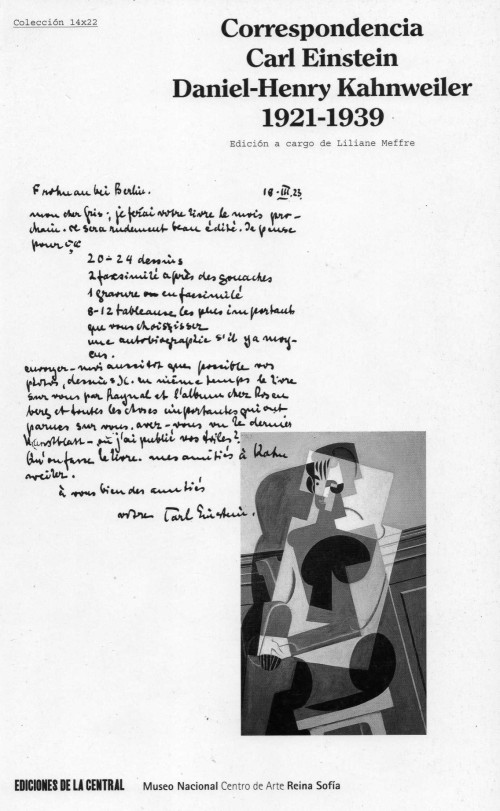 Colección 14x22
Correspondencia
Carl Einstein
Daniel-Henry Kahnweiler
1921-1939
Edición a cargo de Liliane Meffre
Frohnau bei Berlin. 18.III.23
mon cher Gris; je ferai votre livre le mois pro-
chain. ce sera rudement beau édité. Je pense
pour ça
20-24 dessins
2 facsimilé après des gouaches
1 gravure ou en facsimilé
8-12 tableaux, les plus importants
que vous choisissez
une autobiographie s'il y a moy-
en.
envoyez-moi aussitôt que possible vos
photos, dessins etc. en même temps le livre
sur vous par Raynal et l'album chez Rosen
berg et toutes les choses importantes qui ont
parues sur vous. avez-vous vu le dernier
Kunstblatt - où j'ai publié vos toiles?
Qu'on fasse le livre. mes amitiés à Kahn
weiler.
à vous bien des amitiés
votre Carl Einstein.
EDICIONES DE LA CENTRAL Museo Nacional Centro de Arte Reina Sofía